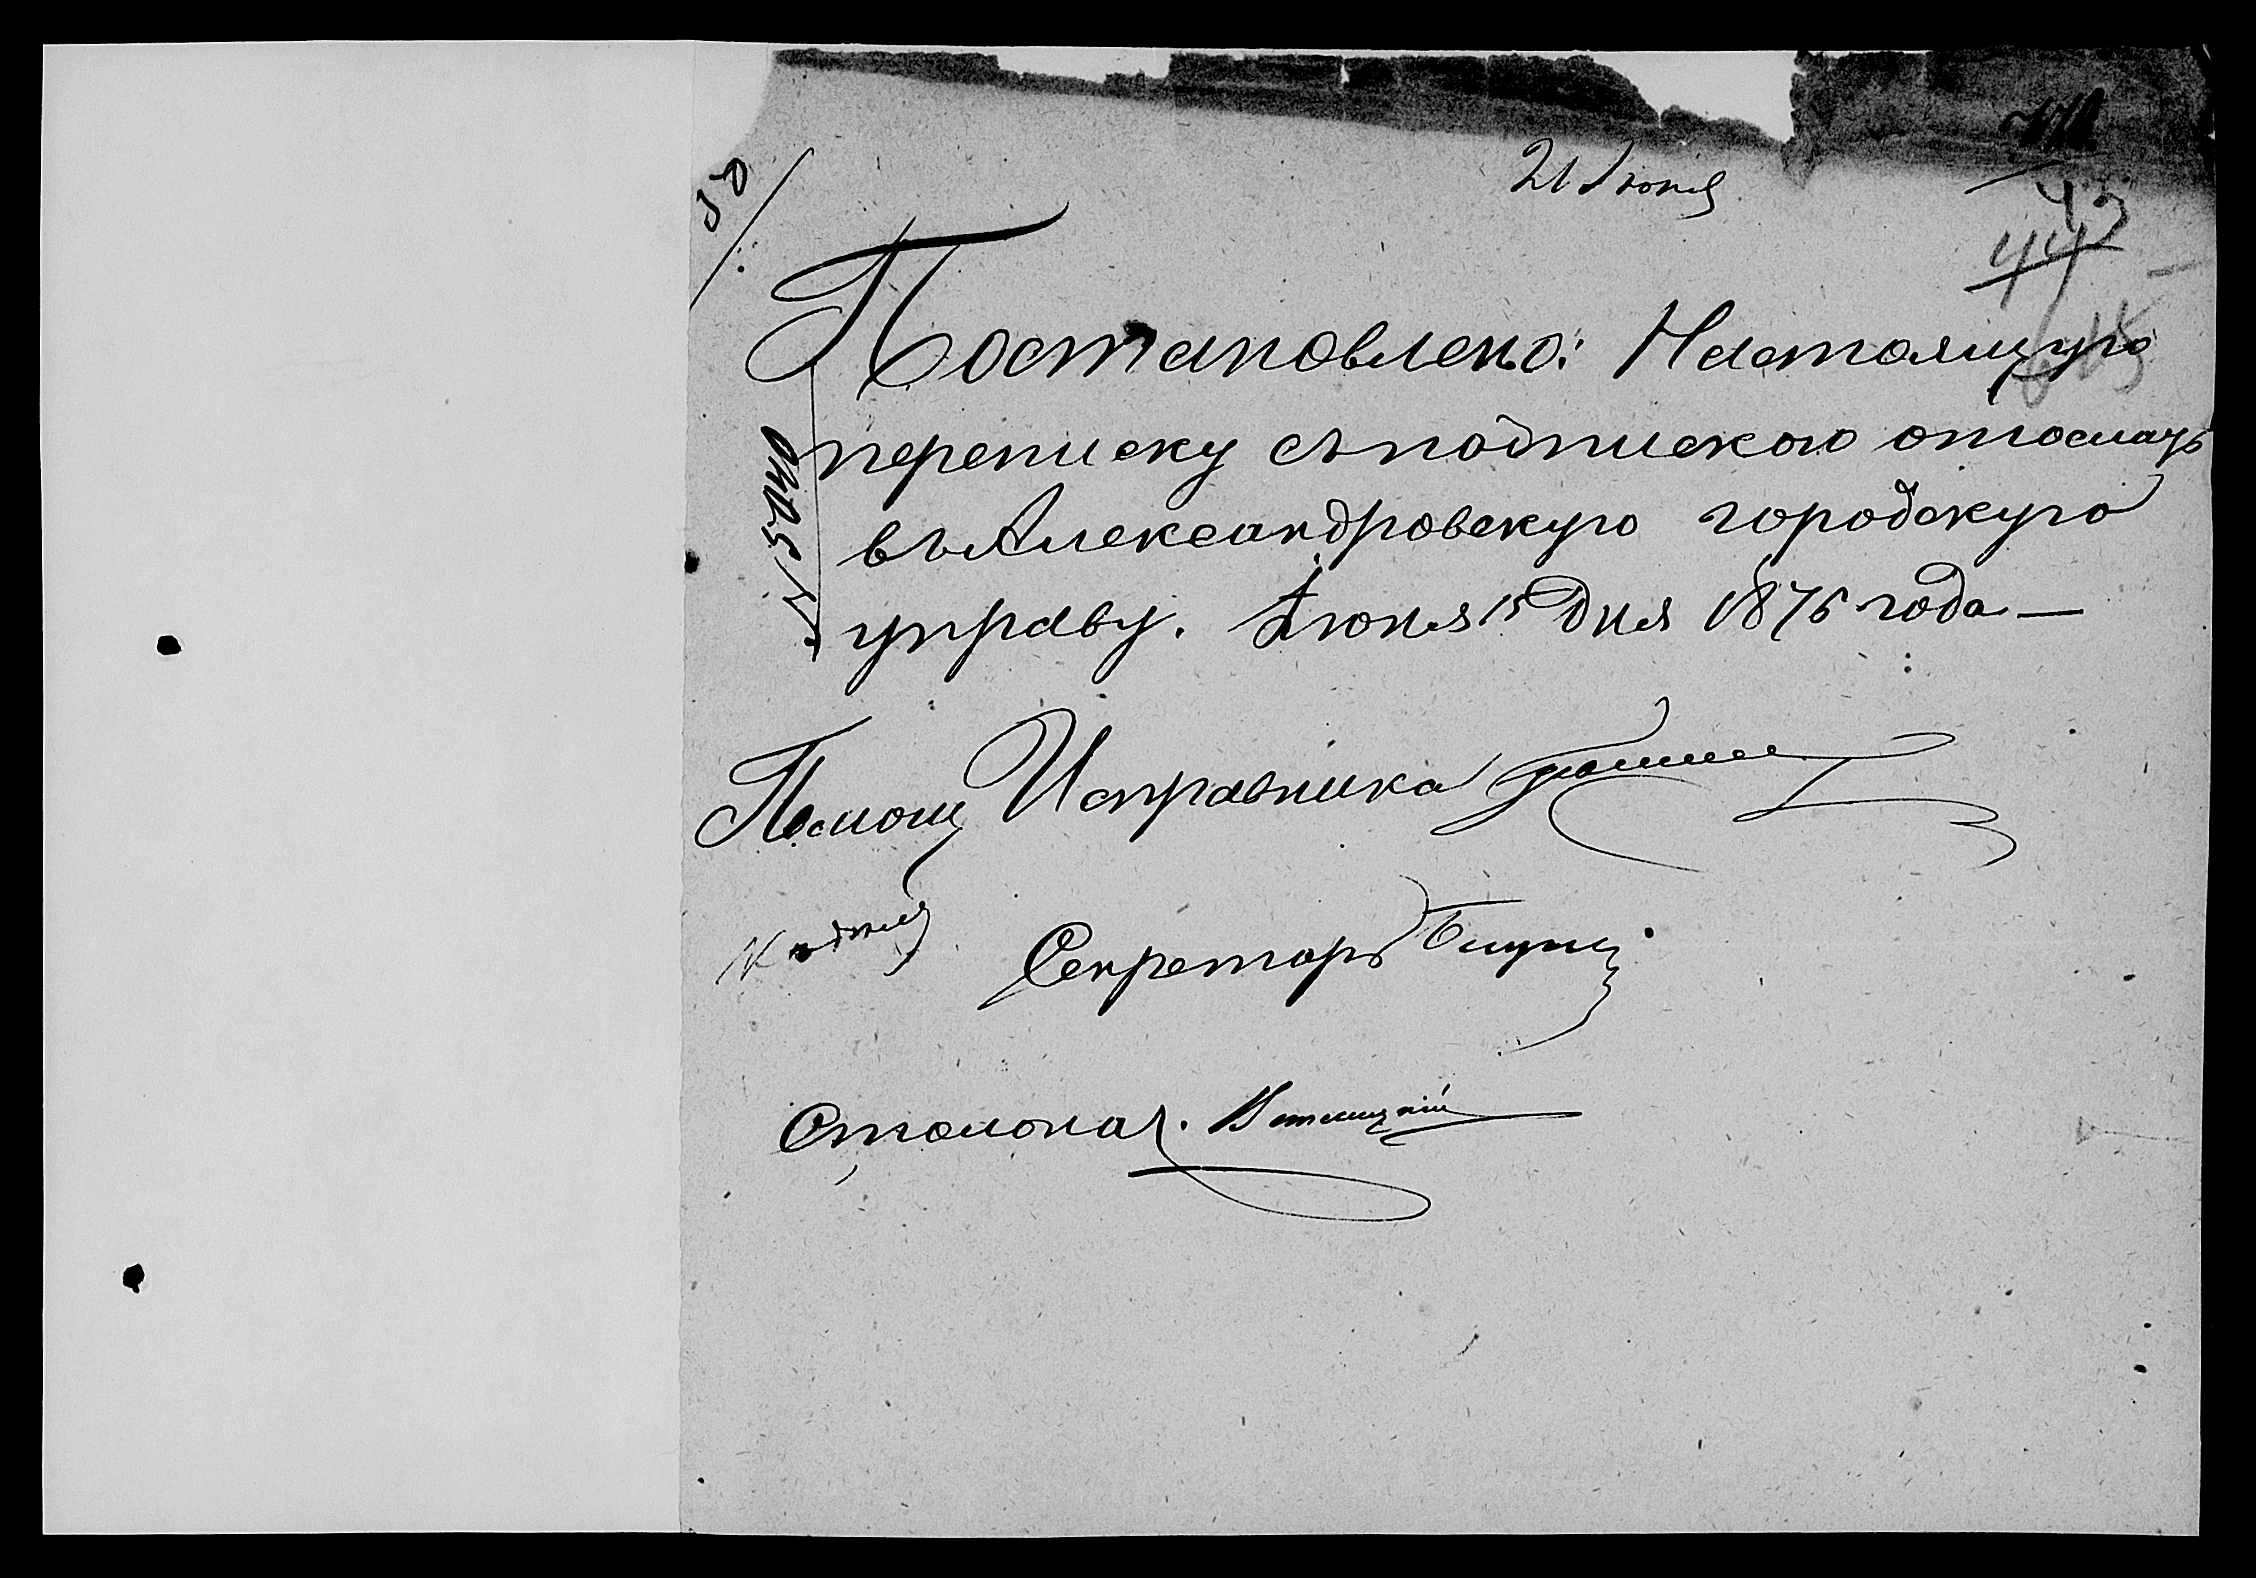 21 Июня
43
44
Постановлено: Настоящую
переписку съ подпискою отослать
въ Александровскую городскую
№ 5040
управу. Июня 15 дня 1876 года —
Помощ Исправника
Секретарь
Столонач.